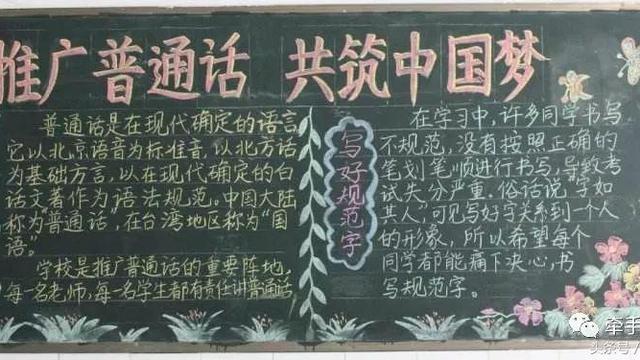 推广普通话 共筑中国梦
普通话是在现代确定的语言
它以北京语音为标准音,以北方话
为基础方言,以在现代确定的白
话文著作为语法规范。中国大陆
称为“普通话”,在台湾地区称为“国
语”。
学校是推广普通话的重要阵地,
每一名老师,每一名学生都有责任讲普通话
写好规范字
在学习中,许多同学书写
不规范,没有按照正确的
笔划笔顺进行书写,导致考
试失分严重。俗话说“字如
其人”,可见写好字关系到一个人
的形象,所以希望每个
同学都能痛下决心,书
写规范字。
牵手
头条号/